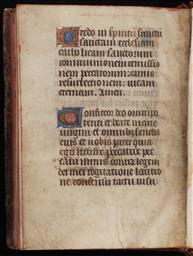 Credo in spiritu sancti
sanctam ecclesiam
catholicam sanctorum
communionem remissio
nem peccatorum carnis
resurrectionem vitam
eternam. Amen.
Confiteor deo omnipo
tenti et beate marie
virgini et omnibus sanctis
eius et vobis pater quia
ego peccavi
contra legem
dei mei cogitatione locutio
ne consensu tactu visu